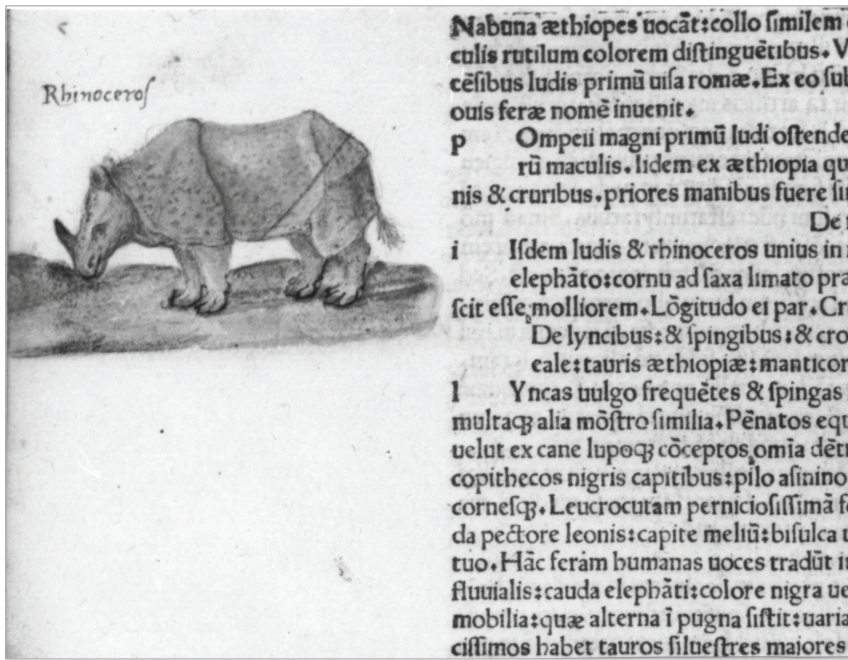 Rhinoceroſ
Nabuna æthiopes uocāt:collo ſimilem
culis rutilum colorem diſtinguētibus. V
cēſibus ludis primū uiſa romæ. Ex eo ſub
ouis feræ nomē inuenit.
p Ompeii magni primū ludi oſtende
rū maculis. Iidem ex æthiopia qu
nis & cruribus. priores manibus fuere ſi
De
i Iſdem ludis & rhinoceros unius in
elephāto:cornu ad ſaxa limato pra
ſcit eſſe molliorem. Lōgitudo ei par. Cr
De lyncibus: & ſpingibus: & cro
eale: tauris æthiopiæ: manticor
l Yncas uulgo frequētes & ſpingas
multaqꝫ alia mōſtro ſimilia. Pēnatos equ
uelut ex cane lupoqꝫ cōceptos omīa dēt
copithecos nigris capitibus: pilo aſinino
corneſqꝫ. Leucrocutam pernicioſiſſimā f
da pectore leonis: capite meliū: biſulca u
tuo. Hāc feram humanas uoces tradūt i
fluuialis: cauda elephāti: colore nigra ue
mobilia: quæ alterna ī pugna ſiſtit: uaria
ciſſimos habet tauros ſilueſtres maiores